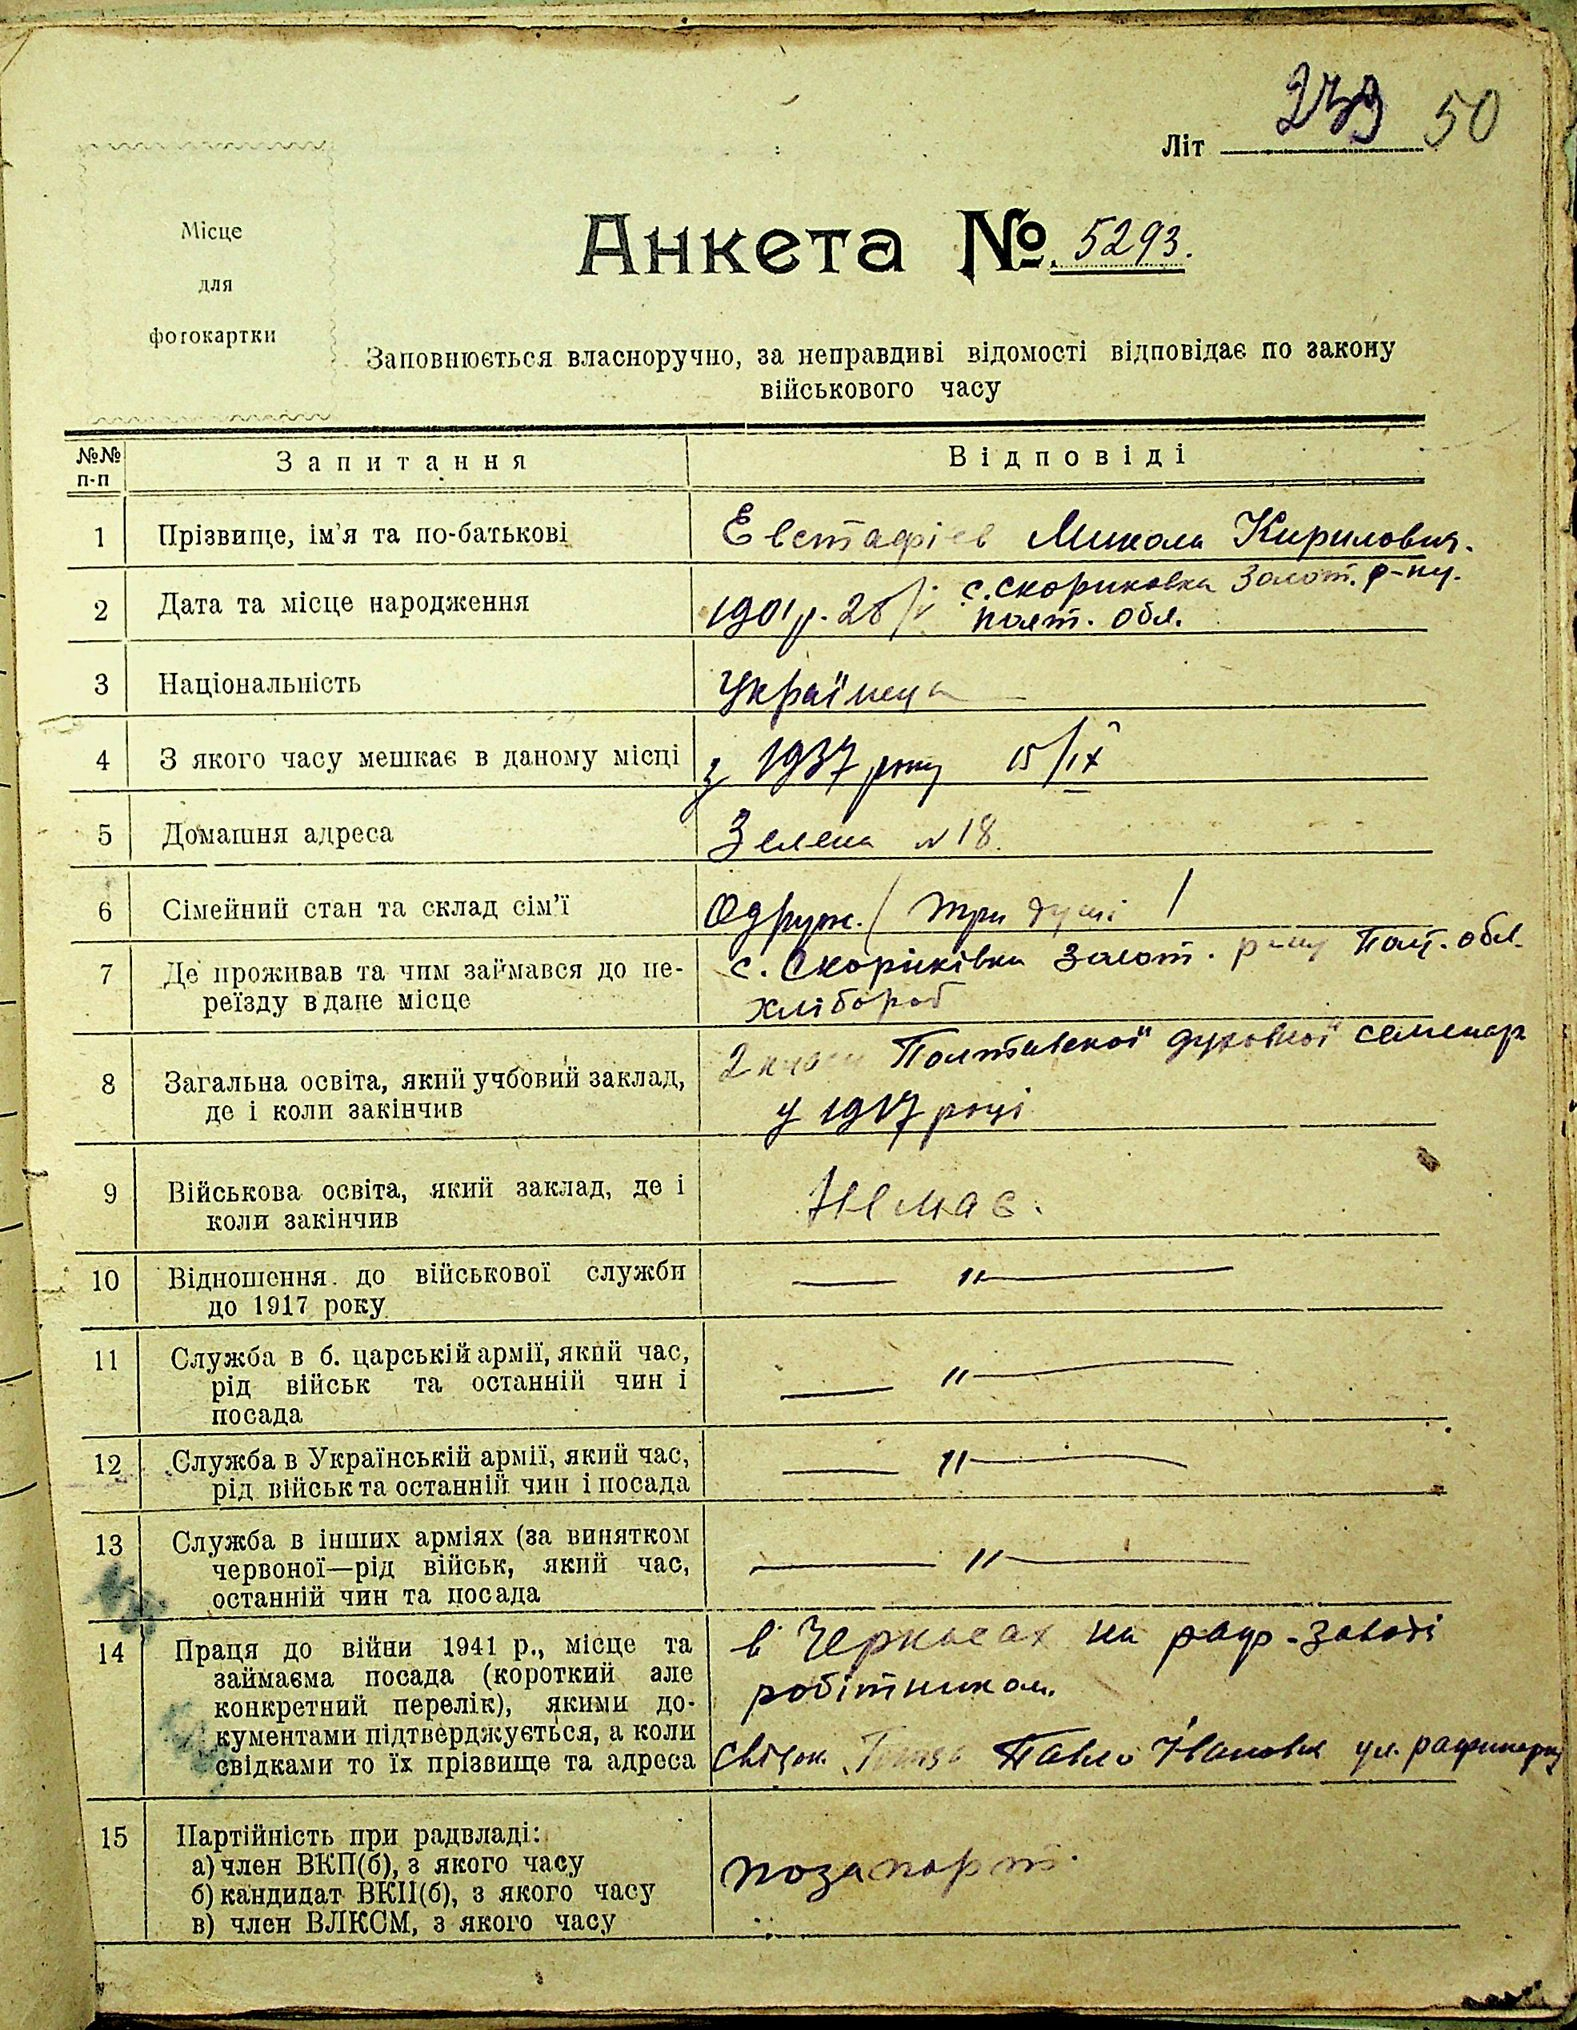 50
Літ
Місце
для
фотокартки
Анкета № 5293.
Заповнюється власноручно, за неправдиві відомості відповідає по закону
військового часу
№№ п-п Запитання Відповіді
1 Прізвище, ім'я та по-батькові Евстафієв Микола Кирилович.
2 Дата та місце народження 1901 р. с. Скориковка Золот. р-ну.
Полт. обл.
3 Національність Українець
4 З якого часу мешкає в даному місці з 1937 року 15/IX
5 Домашня адреса Зелена № 18.
6 Сімейний стан та склад сім'ї Одруж. / три душі /
7 Де проживав та чим займався до пе- с. Скориківка Золот. р-ну Полт. обл.
реїзду в дане місце хлібороб
8 Загальна освіта, який учбовий заклад, 2 Полтавської духовної семенар
де і коли закінчив у 1917 році
9 Військова освіта, який заклад, де і Немає.
коли закінчив
10 Відношення до військової служби — " —
до 1917 року
11 Служба в б. царській армії, який час, — " —
рід військ та останній чин і
посада
12 Служба в Українській армії, який час, — " —
рід військ та останній чин і посада
13 Служба в інших арміях (за винятком — " —
червоної—рід військ, який час,
останній чин та посада
14 Праця до війни 1941 р., місце та в Черкасах на раф-заводі
займаєма посада (короткий але робітником.
конкретний перелік), якими до-
кументами підтверджується, а коли
свідками то їх прізвище та адреса Свідок Павло Іванов ул.
15 Партійність при радвладі: позапарт.
а) член ВКП(б), з якого часу
б) кандидат ВКП(б), з якого часу
в) член ВЛКСМ, з якого часу